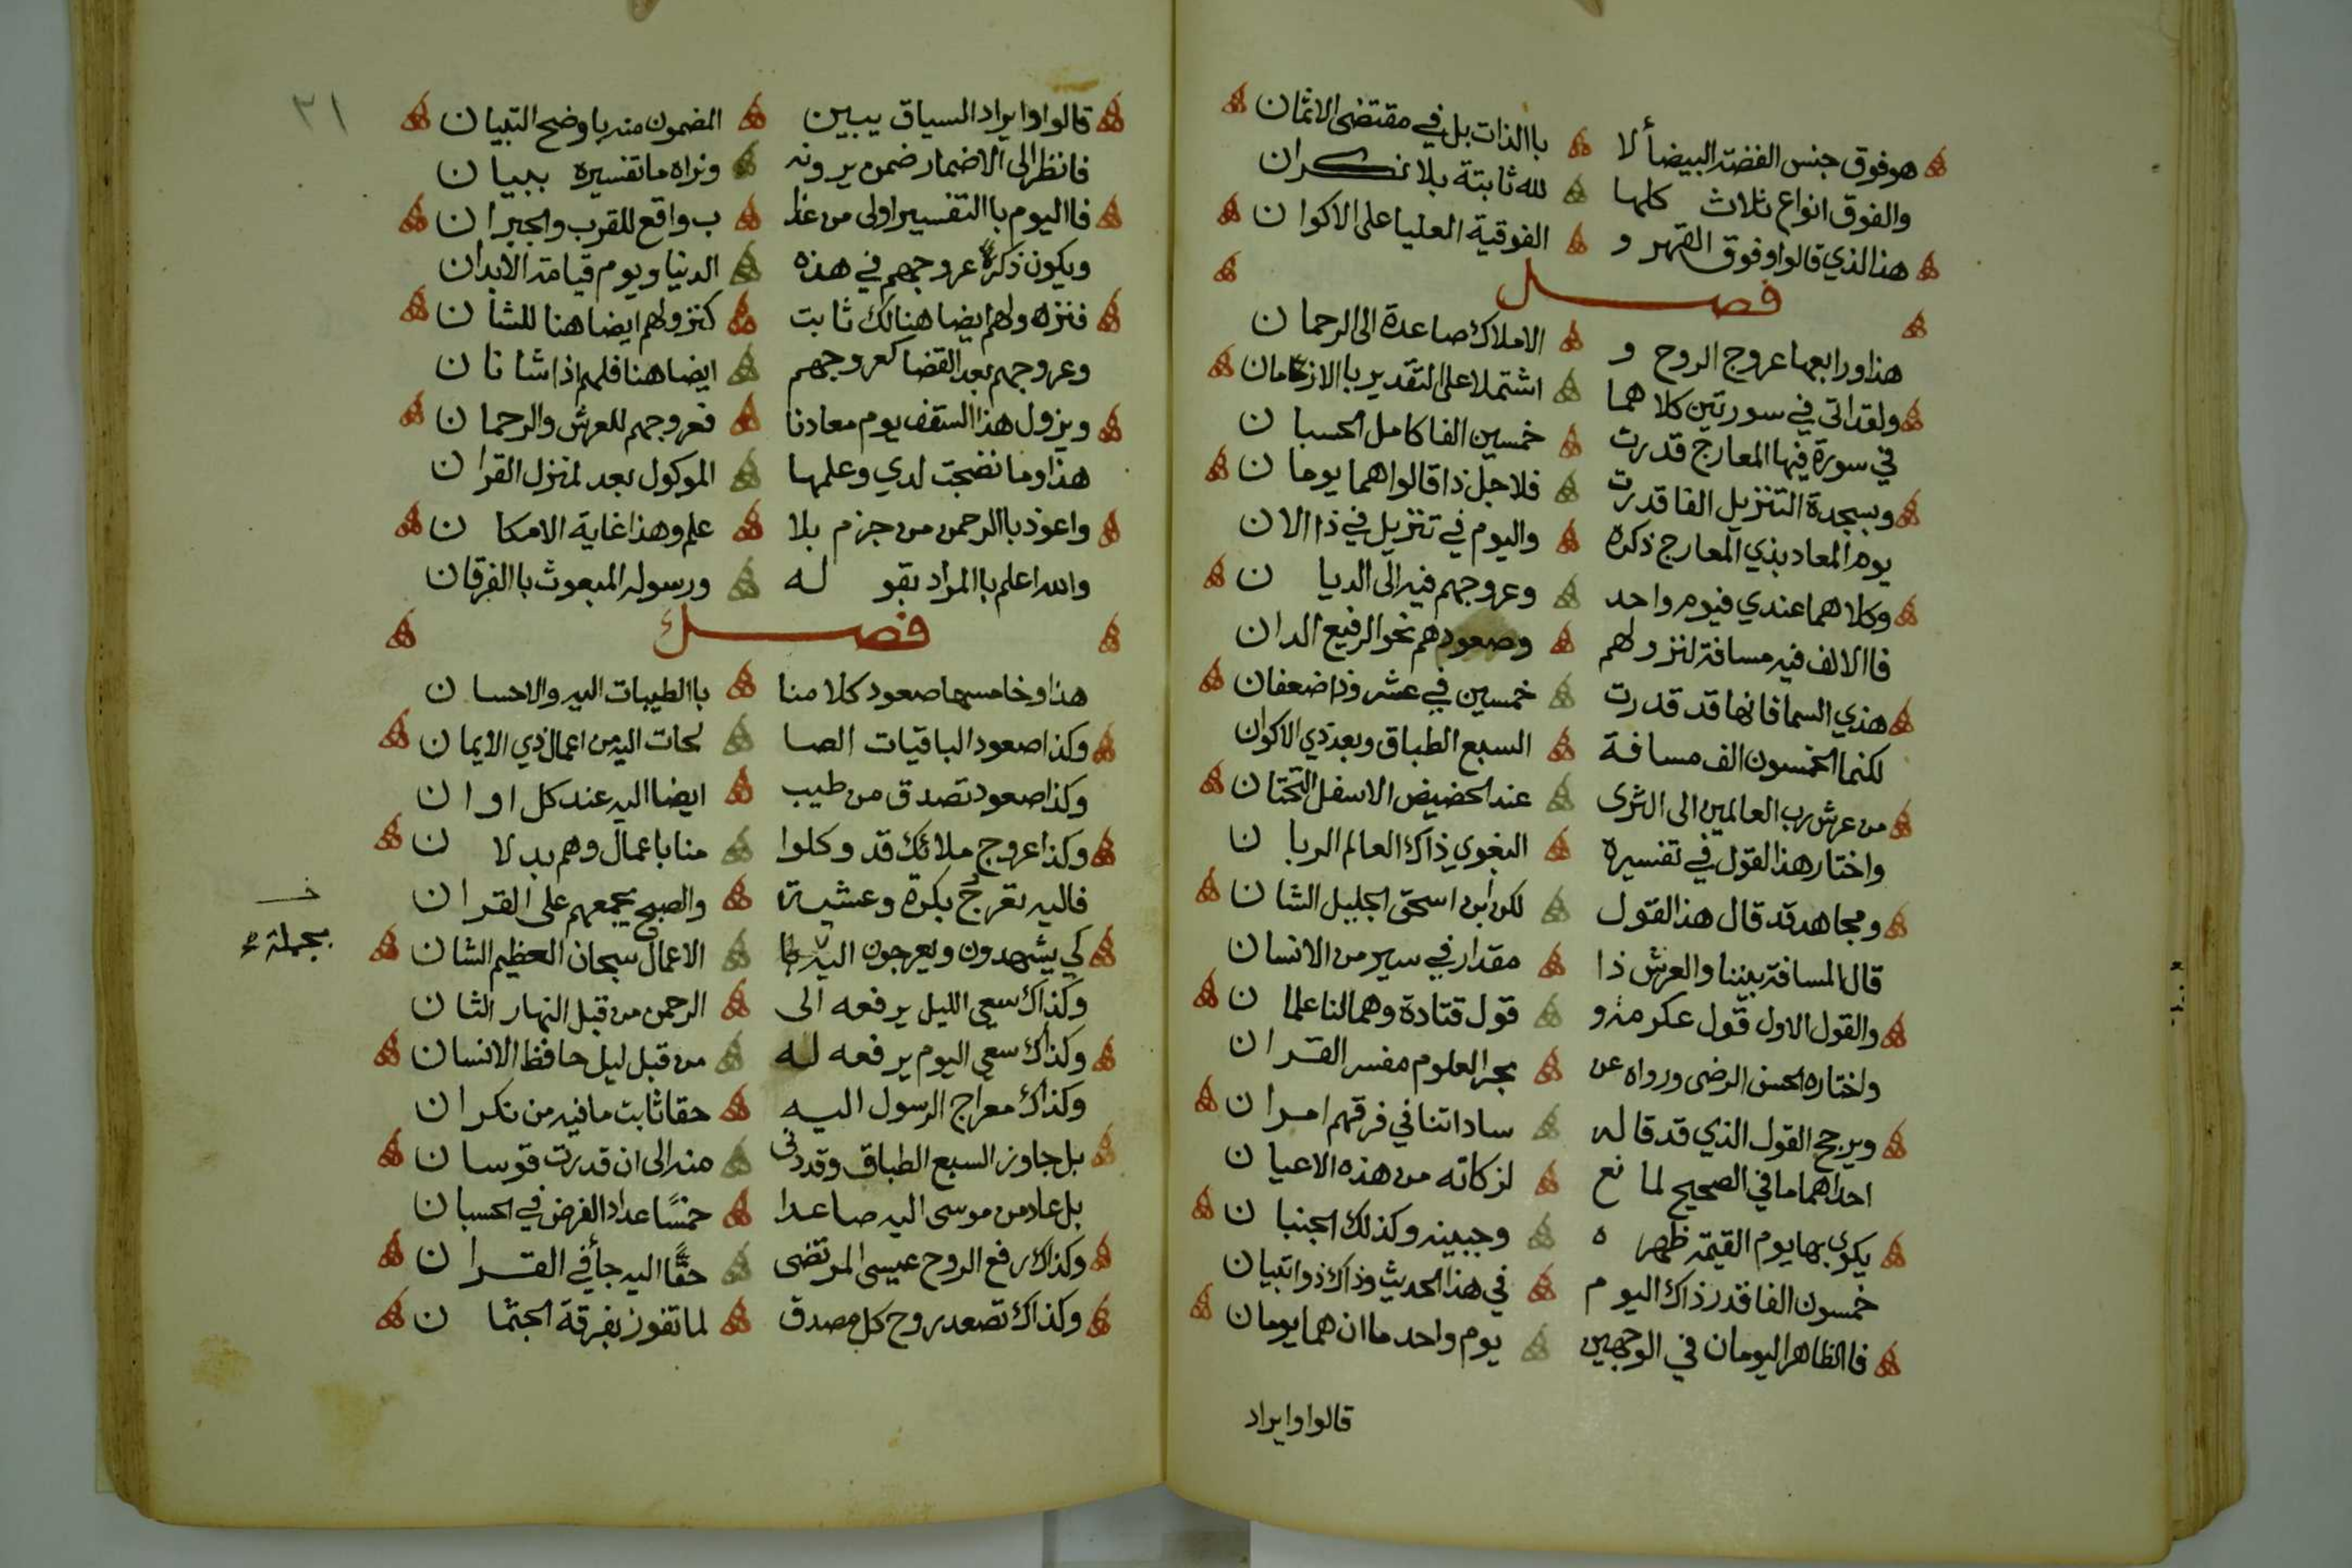 هو فوق جنس الفضة البيضا ألا باالذات بل في مقتضى الاثمان
والفوق انواع ثلاث كلها لله ثابتة بلا نكران
هذا الذي قالوا وفوق القهر و الفوقية العليا على الاكوان
فصل
هذا ورابعها عروج الروح و الاملاك صاعدة الى الرحمان
ولقد اتى في سورتين كلاهما اشتملا على التقدير باالازمان
في سورة فيها المعارج قدرت خمسين الفا كامل الحسبان
وبسجدة التنزيل الفا قدرت فلاجل ذا قالوا هما يومان
يوم المعاد بذي المعارج ذكره واليوم في تنزيل في ذا الان
وكلاهما عندي فيوم واحد وعروجهم فيه الى الديان
فاالالف فيه مسافة لنزولهم وصعودهم نحو الرفيع الدان
هذي السما فانها قد قدرت خمسين في عشر وذا ضعفان
لكنما الخمسون الف مسافة السبع الطباق وبعد ذي الاكوان
من عرش رب العالمين الى الثرى عند الحضيض الاسفل التحتان
واختار هذا القول في تفسيره البغوي ذاك العالم الربان
ومجاهد قد قال هذا القول لكن ابن اسحق الجليل الشان
قال المسافة بيننا والعرش ذا مقدار في سير من الانسان
والقول الاول قول عكرمة و قول قتادة وهما لنا علمان
واختاره الحسن الرضى ورواه عن بحر العلوم مفسر القران
ويرجح القول الذي قد قاله ساداتنا في فرقهم امران
احداهما ما في الصحيح لمانع لزكاته من هذه الاعيان
يكوى بها يوم القيمة ظهره وجبينه وكذلك الجنبان
خمسون الفا قدر ذاك اليوم في هذا الحديث وذاك ذو اتبيان
فاالظاهر اليومان في الوجهين يوم واحد ما ان هما يومان
قالوا وايراد
٣١
قالوا وايراد السياق يبين المضمون منه باوضح التبيان
فانظر الى الاضمار ضمن يرونه ونراه ما تفسيره ببيان
فااليوم باالتفسير اولى من عذا ب واقع للقرب والجيران
ويكون ذكر عروجهم في هذه الدنيا ويوم قيامة الابدان
فنزولهم ايضا هنالك ثابت كنزولهم ايضا هنا للشان
وعروجهم بعد القضا كعروجهم ايضا هنا فلهم اذا شانان
ويزول هذا السقف يوم معادنا فعروجهم للعرش والرحمان
هذا وما نضجت لدي وعلمها الموكول بعد لمنزل القران
واعوذ باالرحمن من جزم بلا علم وهذا غاية الامكان
والله اعلم باالمراد بقوله ورسوله المبعوث باالفرقان
فصل
هذا وخامسها صعود كلامنا باالطيبات اليه والاحسان
وكذا صعود الباقيات الصا لحات اليه من اعمال ذي الايمان
وكذا صعود تصدق من طيب ايضا اليه عند كل اوان
وكذا عروج ملائك قد وكلوا منا باعمال وهم بدلان
فاليه تعرج بكرة وعشية والصبح يجمعهم على القران
كي يشهدون ويعرجون اليه الاعمال سبحان العظيم الشان
خـ
بجملة
وكذاك سعي الليل يرفعه الى الرحمن من قبل النهار الثان
وكذاك سعي اليوم يرفعه له من قبل ليل حافظ الانسان
وكذاك معراج الرسول اليه حقا ثابت ما فيه من نكران
بل جاوز السبع الطباق وقد دنى منه الى ان قدرت قوسان
بل عاد من موسى اليه صاعدا خمسًا عداد الفرض في الحسبان
وكذاك رفع الروح عيسى المرتضى حقًّا اليه جأ في القران
وكذاك تصعد روح كل مصدق لما تفوز بفرقة الجثمان